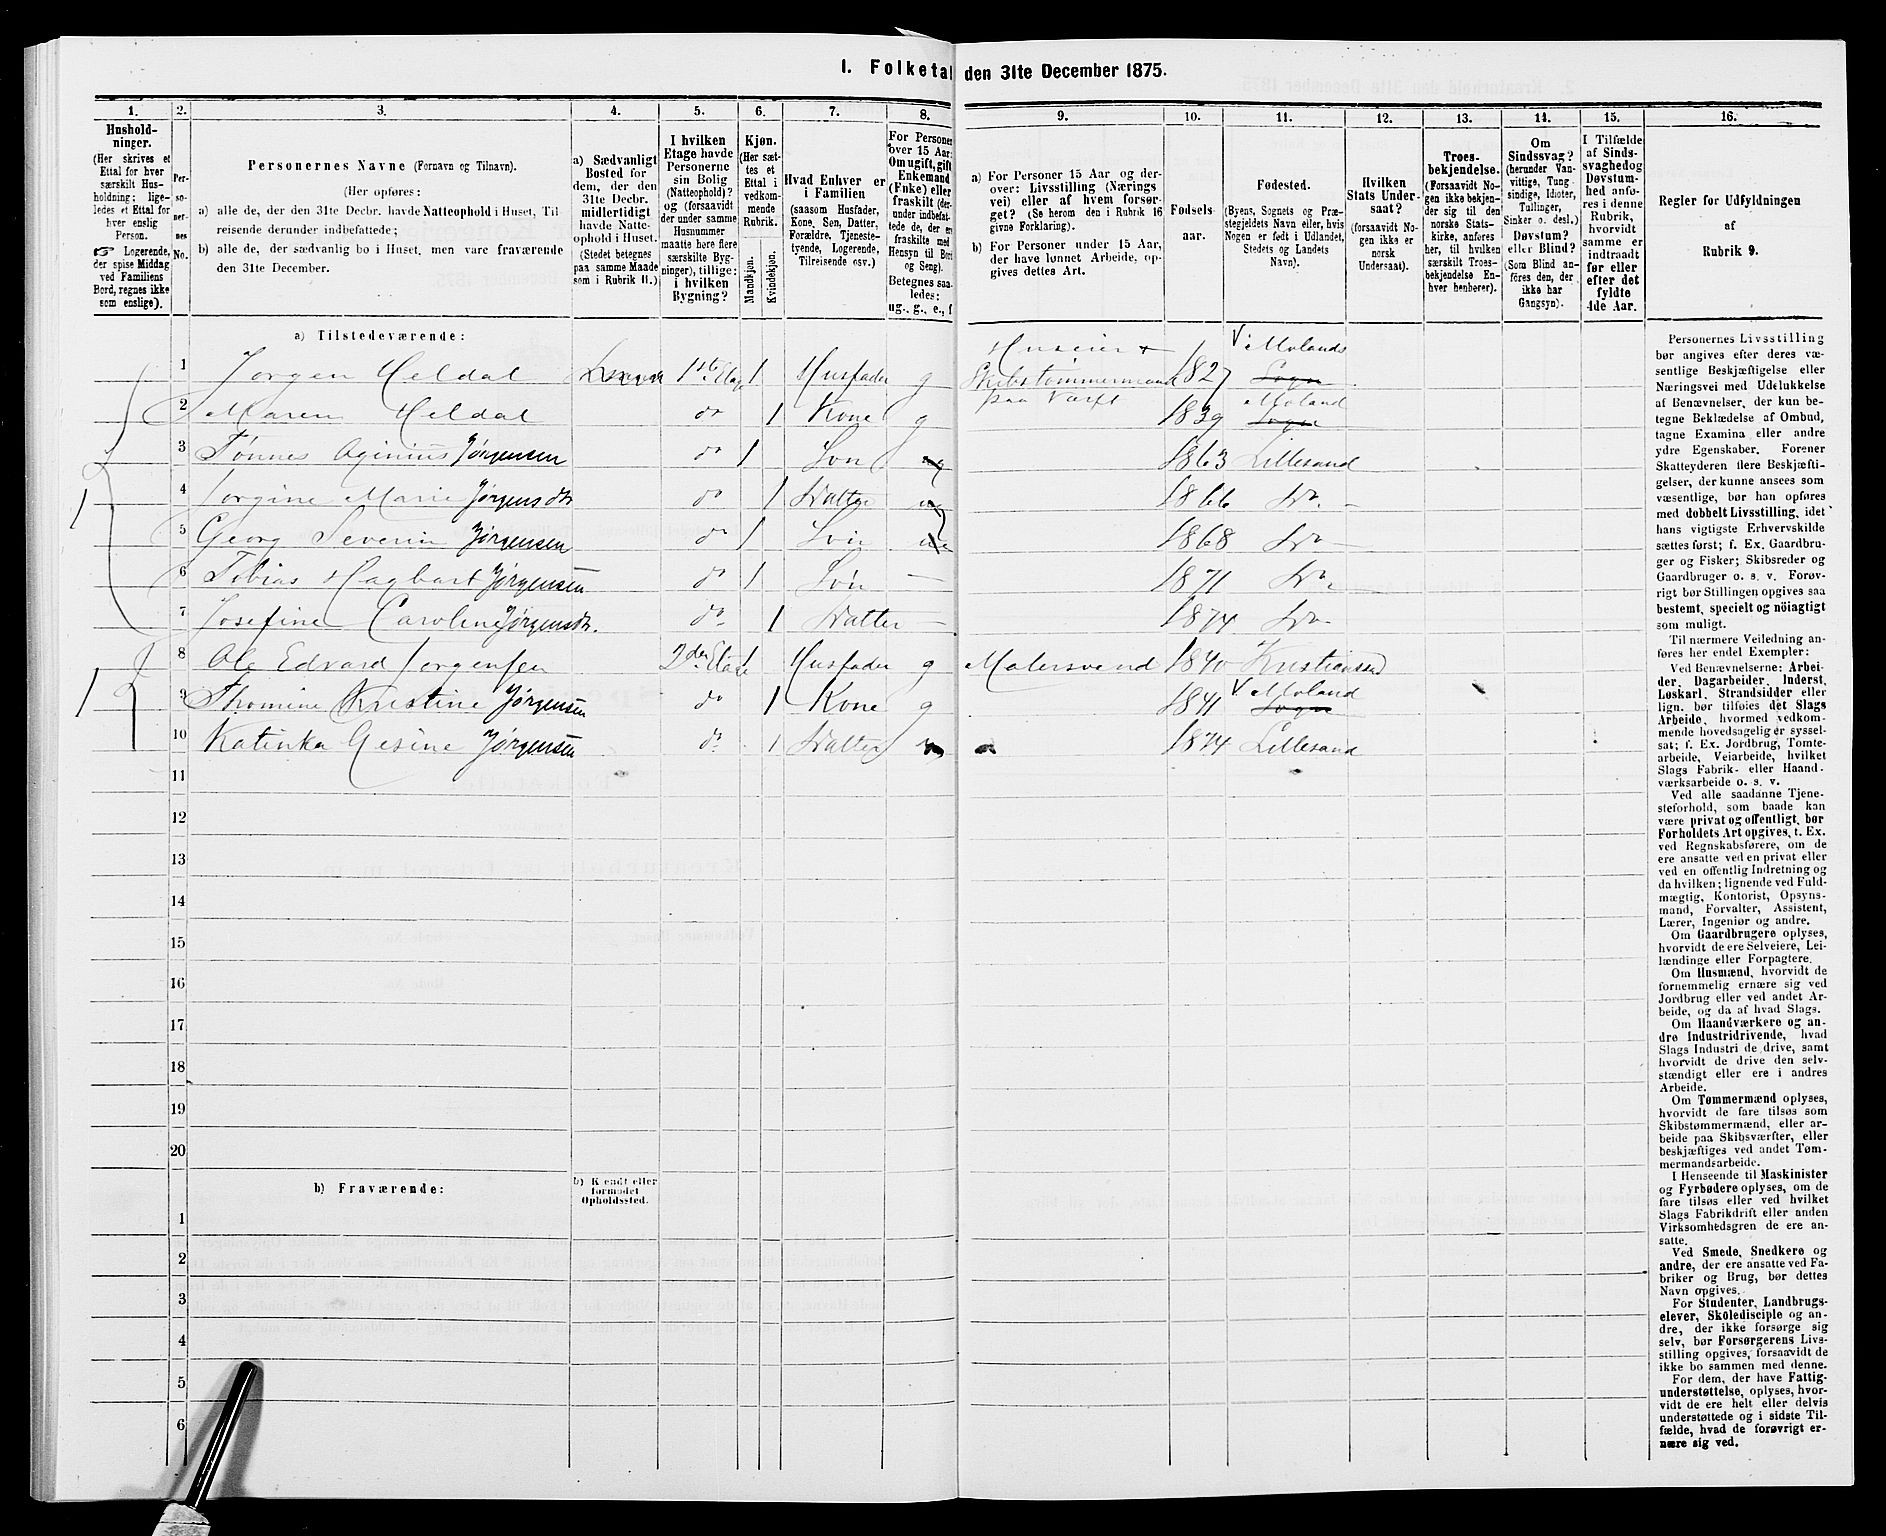 1. Folketal den 31te December 1875.
1. 2. 3. 4. 5. 6. 7. 8. 9. 10. 11. 12. 13. 14. 15. 16.
Hushold-
ninger.
(Her skrives et
Ettal for hver
særskilt Hus-
holdning; lige-
ledes et Ettal for
hver enslig
Person.
☞ Logerende,
der spise Middag
ved Familiens
Bord, regnes ikke
som enslige).
Per-
so-
ner-
nes
No.
Personernes Navne (Fornavn og Tilnavn).
(Her opføres:
a) alle de, der den 31te Decbr. havde Natteophold i Huset, Til-
reisende derunder indbefattede;
b) alle de, der sædvanlig bo i Huset, men vare fraværende
den 31te December.
a) Sædvanligt
Bosted for
dem, der den
31te Decbr.
midlertidigt
havde Natte-
ophold i Huset.
(Stedet betegnes
paa samme Maade
som i Rubrik 11.)
I hvilken
Etage havde
Personerne
sin Bolig
(Natteophold)?
og (forsaavidt
der under samme
Husnummer
maatte høre flere
særskilte Byg-
ninger), tillige:
i hvilken
Bygning?
Kjøn.
(Her sæt-
tes et
Ettal i
vedkom-
mende
Rubrik.
Mandkjøn.
Kvindekjøn.
Hvad Enhver er
i Familien
(saasom Husfader,
Kone, Søn, Datter,
Forældre, Tjeneste-
tyende, Logerende,
Tilreisende osv.)
For Personer
over 15 Aar:
Om ugift, gift
Enkemand
(Enke) eller
fraskilt (der-
under indbefat-
tede de, der er
fraskilte med
Hensyn til Bord
og Seng).
Betegnes saa-
ledes:
ug., g., e., f
a) For Personer 15 Aar og der-
over: Livsstilling (Nærings
vei) eller af hvem forsør-
get? (Se herom den i Rubrik 16
givne Forklaring).
b) For Personer under 15 Aar,
der have lønnet Arbeide, op-
gives dettes Art.
Fødsels-
aar.
Fødested.
(Byens, Sognets og Præ-
stegjeldets Navn eller, hvis
Nogen er født i Udlandet,
Stedets og Landets
Navn).
Hvilken
Stats Under-
saat?
(forsaavidt No-
gen ikke er
norsk
Undersaat).
Troes-
bekjendelse.
(Forsaavidt No-
gen ikke bekjen-
der sig til den
norske Stats-
kirke, anføres
her, til hvilken
særskilt Troes-
bekjendelse En-
hver henhører).
Om
Sindssvag?
(herunder Van-
vittige, Tung-
sindige, Idioter,
Tullinger,
Sinker o. desl.)
Døvstum?
eller Blind?
(Som Blind an-
føres den, der
ikke har
Gangsyn).
I Tilfælde
af Sinds-
svaghed og
Døvstum-
hed anfø-
res i denne
Rubrik,
hvorvidt
samme er
indtraadt
før eller
efter det
fyldte
4de Aar.
Regler for Udfyldningen
af
Rubrik 9.
a) Tilstedeværende:
1 Jørgen Heldal 1ste Etage 1 Husfader g Huseier + Skibstømmermand paa Værft 1827 V. Molands Sogn
2 Maren Heldal do 1 Kone g 1839 Moland Sogn
3 Tønnes Aginius Jørgensen do 1 Søn ug 1863 Lillesand
4 Jorgine Marie Jørgensdtr do 1 Datter ug 1866 Do
5 Georg Severin Jørgensen do 1 Søn 1868 Do
6 Tobias Hagbart Jørgensen do 1 Søn 1871 Do
7 Josefine Caroline Jørgensdtr. do 1 Datter 1874 Do
8 Ole Edvard Jørgensen 2den Etage 1 Husfader g Malersvend 1840 Kristiansand
9 Thomine Kristine Jørgensen do 1 Kone g 1841 V. Moland Sogn
10 Katinka Gesine Jørgensen do 1 Datter 1874 Lillesand
11
12
13
14
15
16
17
18
19
20
b) Fraværende:
b) Kjendt eller
formodet
Opholdssted.
1
2
3
4
5
6
Personernes Livsstilling
bør angives efter deres væ-
sentlige Beskjæftigelse eller
Næringsvei med Udelukkelse
af Benævnelser, der kun be-
tegne Beklædelse af Ombud,
tagne Examina eller andre
ydre Egenskaber. Forener
Skatteyderen flere Beskjæfti-
gelser, der kunne ansees som
væsentlige, bør han opføres
med dobbelt Livsstilling, idet
hans vigtigste Erhvervskilde
sættes først; f. Ex. Gaardbru-
ger og Fisker; Skibsreder og
Gaardbruger o. s. v. Forøv-
rigt bør Stillingen opgives saa
bestemt, specielt og nöiagtigt
som muligt.
Til nærmere Veiledning an-
føres her endel Exempler:
Ved Benævnelserne: Arbei-
der, Dagarbeider, Inderst,
Løskarl, Strandsidder eller
lign. bør tilføies det Slags
Arbeide, hvormed vedkom-
mende hovedsagelig er syssel-
sat; f. Ex. Jordbrug, Tomte-
arbeide, Veiarbeide, hvilket
Slags Fabrik- eller Haand-
værksarbeide o. s. v.
Ved alle saadanne Tjene-
steforhold, som baade kan
være privat og offentligt, bør
Forholdets Art opgives, t. Ex.
ved Regnskabsførere, om de
ere ansatte ved en privat eller
ved en offentlig Indretning og
da hvilken; lignende ved Fuld-
mægtig, Kontorist, Opsyns-
mand, Forvalter, Assistent,
Lærer, Ingeniør og andre.
Om Gaardbrugere oplyses,
hvorvidt de ere Selveiere, Lei-
lændinge eller Forpagtere.
Om Husmænd, hvorvidt de
fornemmelig ernære sig ved
Jordbrug eller ved andet Ar-
beide, og da af hvad Slags.
Om Haandværkere og an-
dre Industridrivende, hvad
Slags Industri de drive, samt
hvorvidt de drive den selv-
stændigt eller ere i andres
Arbeide.
Om Tømmermænd oplyses,
hvorvidt de fare tilsøs som
Skibstømmermænd, eller ar-
beide paa Skibsværfter, eller
beskjæftiges ved andet Tøm-
mermandsarbeide.
I Henseende til Maskinister
og Fyrbødere oplyses, om de
fare tilsøs eller ved hvilket
Slags Fabrikdrift eller anden
Virksomhedsgren de ere an-
satte.
Ved Smede, Snedkere og
andre, der ere ansatte ved Fa-
briker og Brug, bør dettes
Navn opgives.
For Studenter, Landbrugs-
elever, Skoledisciple og an-
dre, der ikke forsørge sig
selv, bør Forsørgerens Livs-
stilling opgives, forsaavidt de
ikke bo sammen med denne.
For dem, der have Fattig-
understøttelse, oplyses, hvor-
vidt de ere helt eller delvis
understøttede og i sidste Til-
fælde, hvad de forøvrigt er-
nære sig ved.